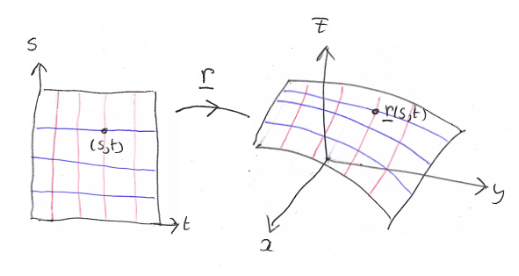 s
t
(s,t)
r
z
r(s,t)
y
x